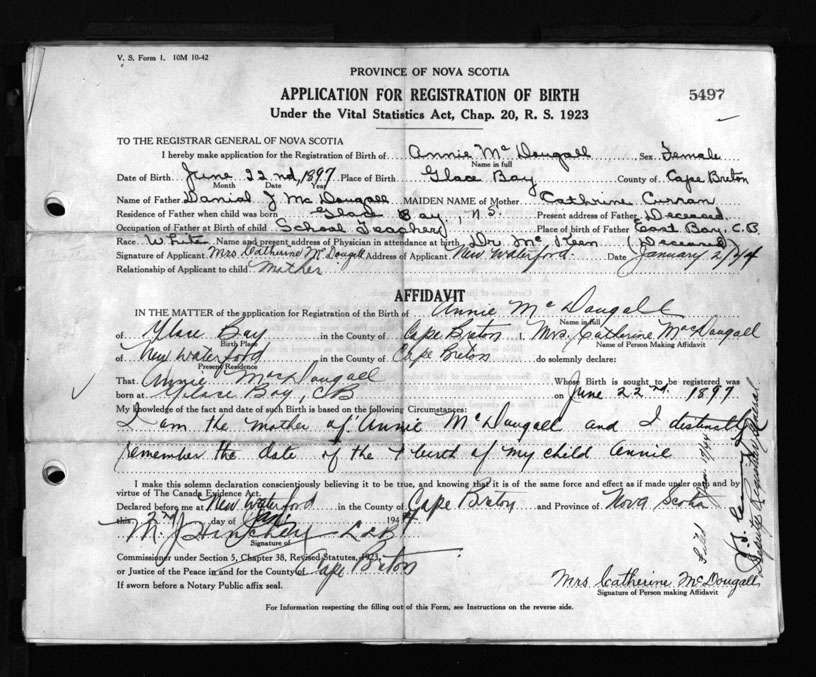 V. S. Form 1. 10M 10-42
PROVINCE OF NOVA SCOTIA
APPLICATION FOR REGISTRATION OF BIRTH
5497
Under the Vital Statistics Act, Chap. 20, R. S. 1923
TO THE REGISTRAR GENERAL OF NOVA SCOTIA
I hereby make application for the Registration of Birth of Annie McDougall Sex Female
Name in full
Date of Birth June 22nd, 1897 Place of Birth Glace Bay County of Cape Breton
Month Date Year
Name of Father Danial J McDougall MAIDEN NAME of Mother Cathrine Curran
Residence of Father when child was born Glace Bay, N.S. Present address of Father Deceased
Occupation of Father at Birth of child School Teacher Place of birth of Father East Bay, C.B.
Race White Name and present address of Physician in attendance at birth Dr. McKeen (Deceased)
Signature of Applicant Mrs Catherine McDougall Address of Applicant New Waterford. Date January 2/44
Relationship of Applicant to child Mother
AFFIDAVIT
IN THE MATTER of the application for Registration of the Birth of Annie McDougall
Name in full
of Glace Bay in the County of Cape Breton I, Mrs. Catherine MacDougall
Birth Place Name of Person Making Affidavit
of New Waterford in the County of Cape Breton do solemnly declare:
Present Residence
That Annie MacDougall Whose Birth is sought to be registered was
born at Glace Bay, CB on June 22nd. 1897
My knowledge of the fact and date of such Birth is based on the following Circumstances:
I am the mother of Annie McDougall and I distinctly
remember the date of the birth of my child Annie
I make this solemn declaration conscientiously believing it to be true, and knowing that it is of the same force and effect as if made under oath and by
virtue of The Canada Evidence Act.
Declared before me at New Waterford in the County of Cape Breton and Province of Nova Scotia
this 2nd day of Jan. 1944
M. J. Hinchey
Signature of
Commissioner under Section 5, Chapter 38, Revised Statutes, 1923,
or Justice of the Peace in and for the County of Cape Breton
If sworn before a Notary Public affix seal.
Mrs. Catherine McDougall
Signature of Person making Affidavit
For Information respecting the filling out of this Form, see Instructions on the reverse side.
Filed Jan.
Deputy Registrar General